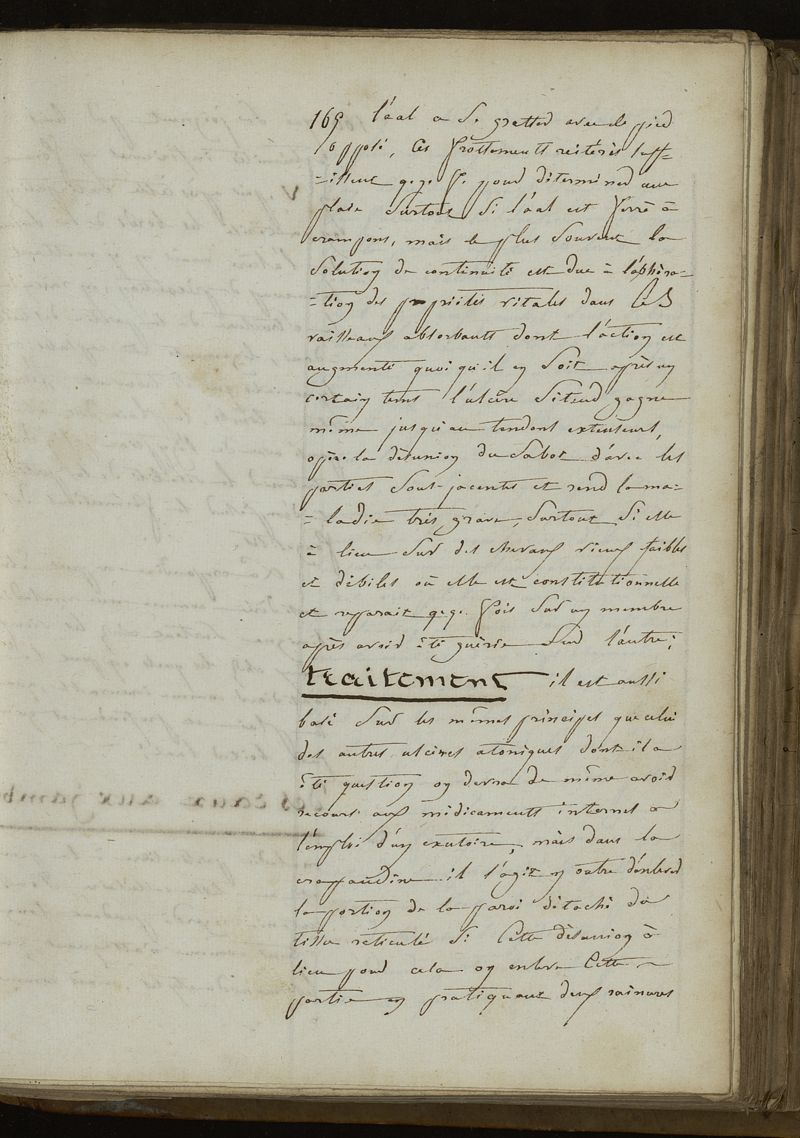 169 l'aal a Se gratter avec le pied
opposé, Ces frottements reiterés suff-
-issent qq. fs. pour déterminer une
plaie Surtout Si l'aal est ferré à
crampons, mais le plus Souvent la
Solution de continuité est due à l'aphéra-
-tion des propriétés vitales dans les
vaisseaux absorbants dont l'action est
augmenté quoi qu'il en Soit après un
certain tems l'ulcère S'étend gagne
même jusqu'au tendont extenseurs,
opère la désunion du Sabot d'avec les
parties Sout-jacentes et rend la ma-
-ladie très grave, Surtout Si elle
à lieu Sur des chevaux vieux faibles
et débiles où elle est constitutionnelle
et reparait qq. fois Sur un membre
après avoir été guérie Sur l'autre;
traitement il est aussi
basé Sur les mêmes principes que celui
des autres ulcères atoniques dont il a
été question on devra de même avoir
recourt aux médicaments internes a
l'emploi d'un exutoire, mais dans la
crapaudine il s'agit en outre d'enlever
la portion de la paroi détaché du
tissu reticulé Si Cette désunion à
lieu pour cela on enleve Cette
partie en pratiquant deux rainures